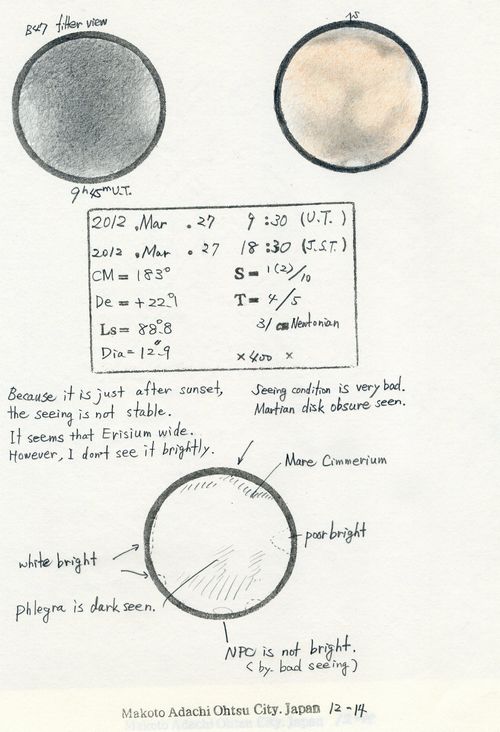 B47 filter view
9ʰ45ᵐU.T.
2012 . Mar . 27 9:30 (U.T.)
2012 . Mar . 27 18:30 (J.S.T.)
CM = 183° S = 1(2)/10
De = +22°.1 T = 4/5
Ls = 88°.8 31 cm Newtonian
Dia = 12".9 × 400 ×
Because it is just after sunset,
the seeing is not stable.
It seems that Erisium wide.
However, I don't see it brightly.
Seeing condition is very bad.
Martian disk obsure seen.
Mare Cimmerium
poor bright
white bright
phlegra is dark seen.
NPC is not bright.
(by bad seeing)
Makoto Adachi Ohtsu City. Japan 12-14